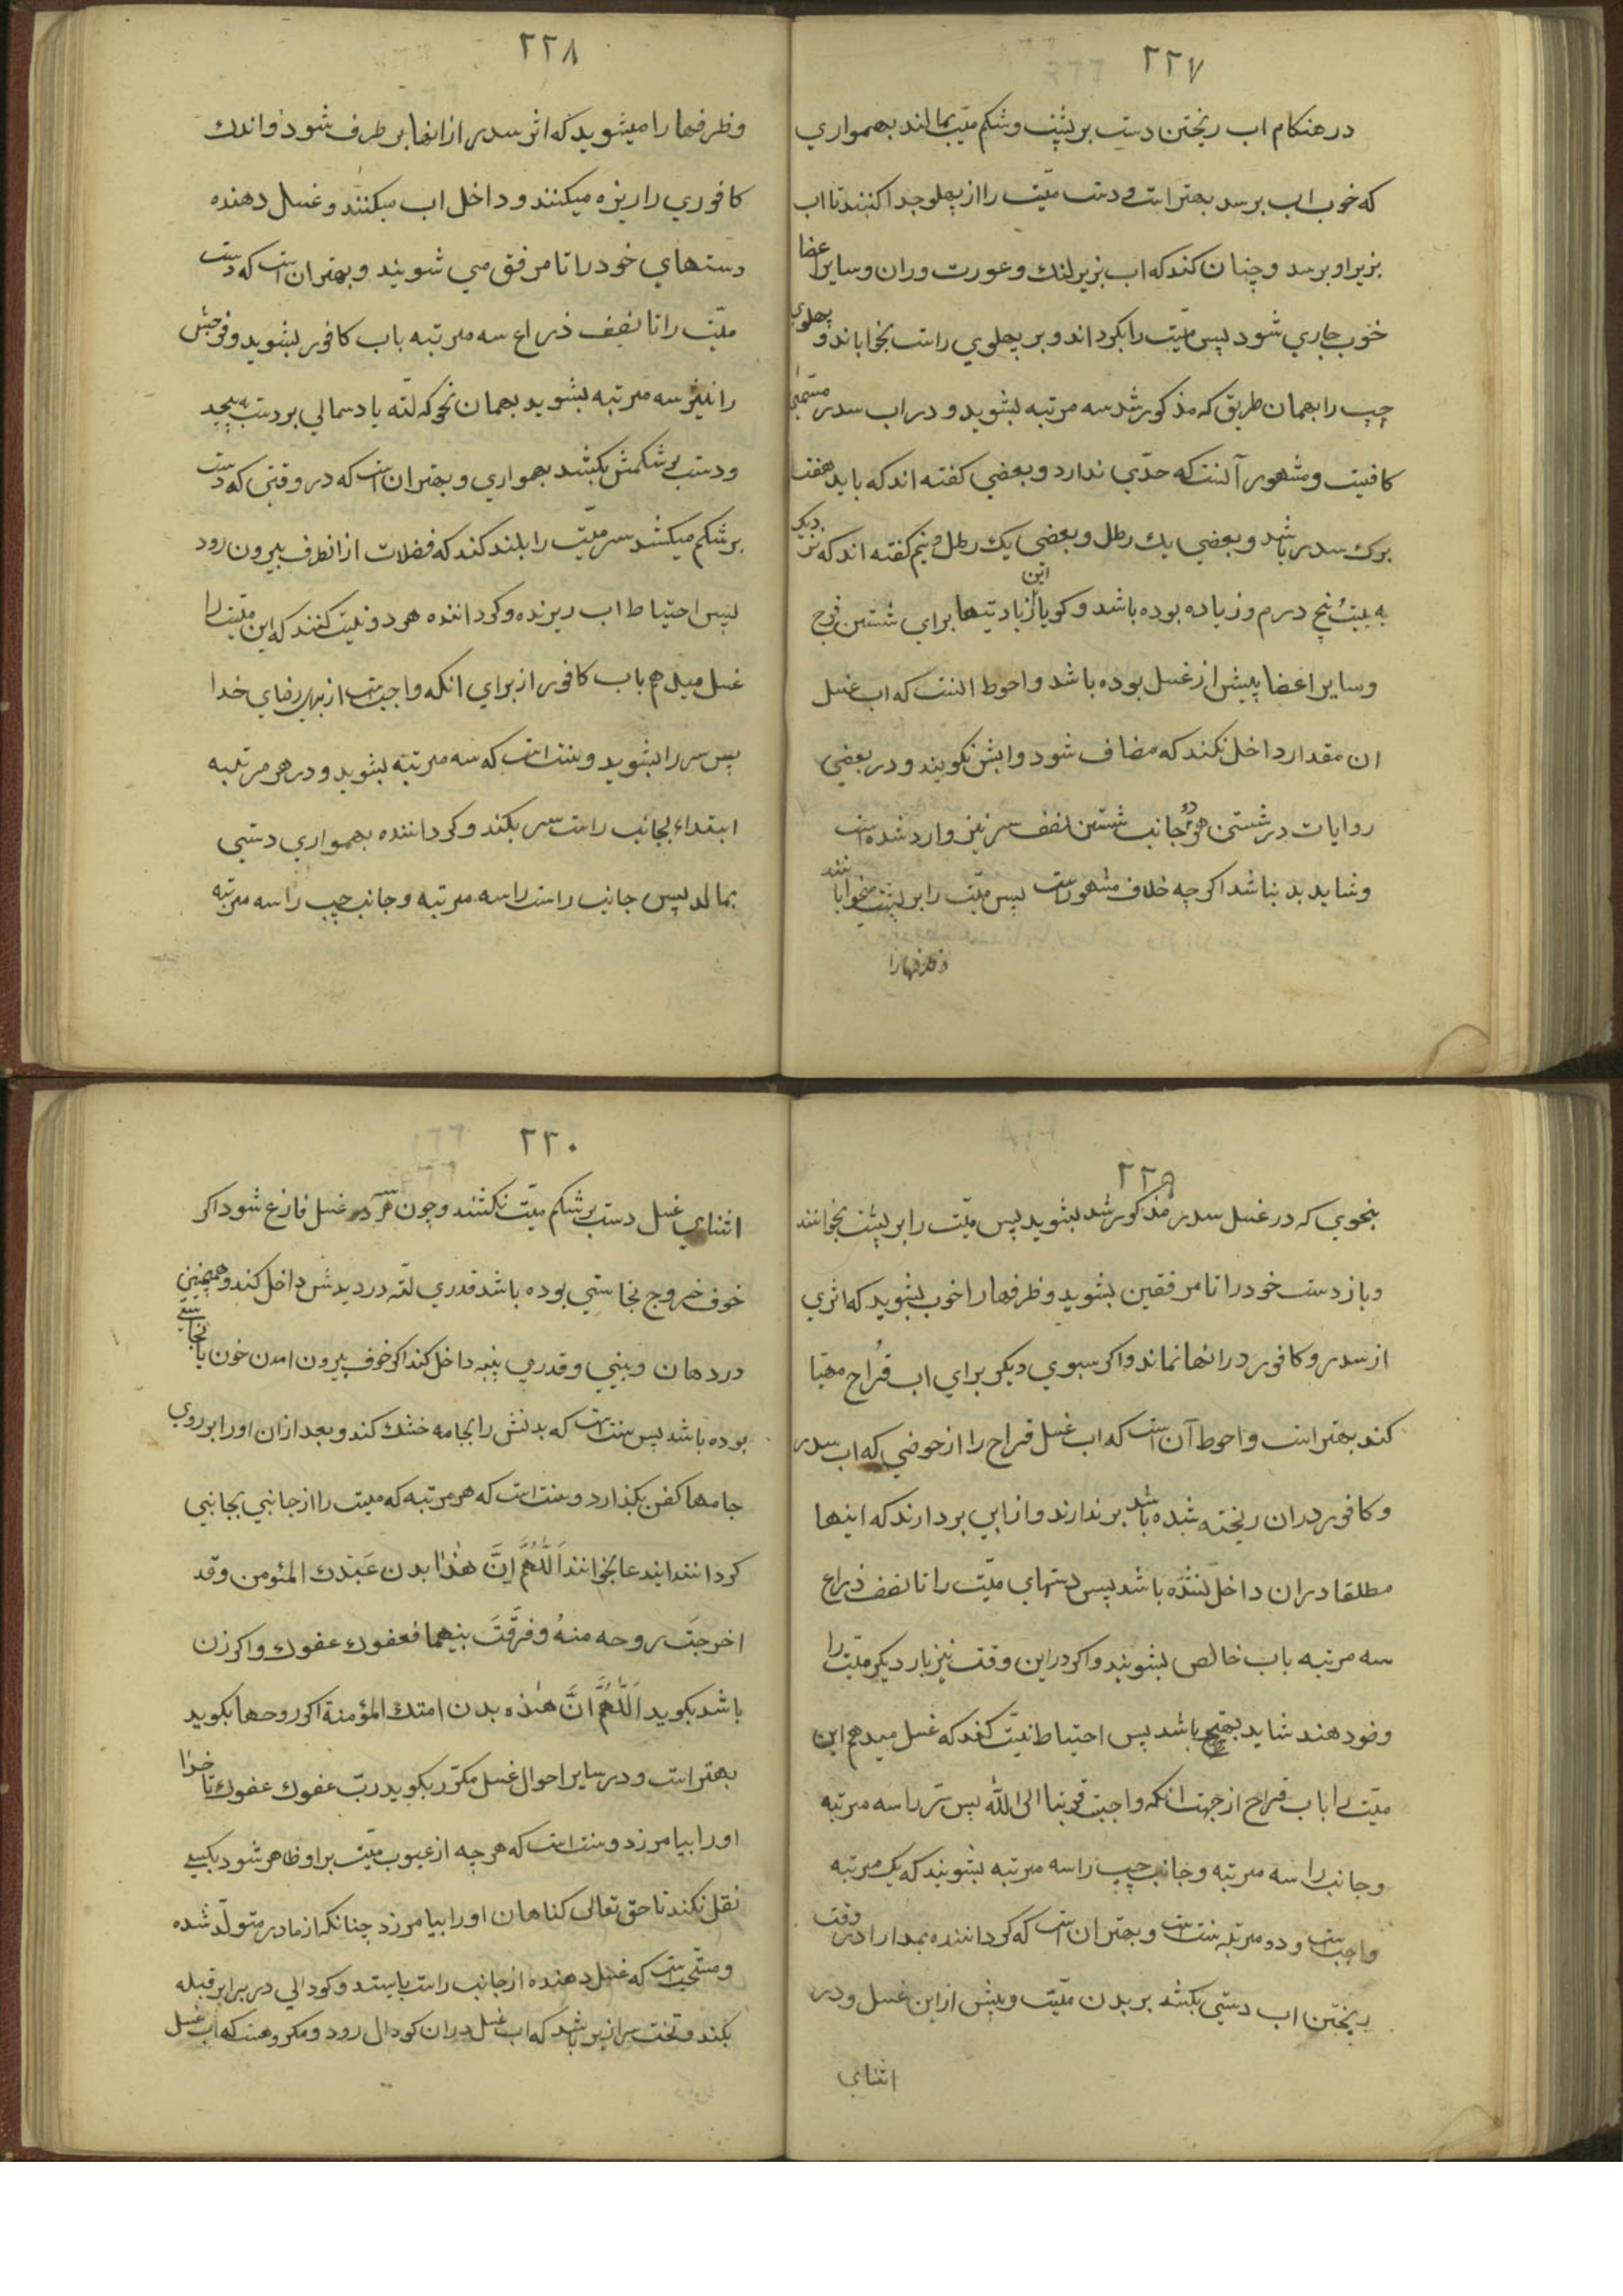 ۲۲۷
در هنكام اب ريختن دست بر پشت و شكم ميّت بمالند بهمواري
كه خوب اب برسد بهتر است و دست ميّت را از پهلو جدا كنند تا اب
بزير او برسد و چنان كند كه اب بزير لنك و عورت و ران و ساير اعضا
خوب جاري شود پس ميّت را بكرداند و بر پهلوي راست بخواباند و پهلوي
چپ را بهمان طريق كه مذكور شد سه مرتبه بشويد و در اب سدر مسمّى
كافيست و مشهور آنست كه حدّي ندارد و بعضي كفته اند كه بايد هفت
برك سدر باشد و بعضي يك رطل و بعضي يك رطل و نيم كفته اند كه نزديك
به بيست پنج درم و زياده بوده باشد و كويا اين زيادتيها براي شستن فرج
و ساير اعضا پيش از غسل بوده باشد و احوط انست كه اب غسل
ان مقدار داخل نكند كه مضاف شود و ابش نكويند و در بعضي
روايات در شستن هر دو جانب شستن نصف سر نيز وارد شده است
و شايد بد نباشد اكر چه خلاف مشهور است پس ميّت را بر پشت ميخوابانند
و ظرفهارا
۲۲۸
و ظرفها را ميشويد كه اثر سدر از انها بر طرف شود و اندك
كافوري را ريزه ميكنند و داخل اب ميكنند و غسل دهنده
دستهاي خود را تا مرفق مي شويند و بهتر ان است كه دست
ميّت را تا نصف ذراع سه مرتبه باب كافور بشويد و فرجش
را نيز سه مرتبه بشويد بهمان نحو كه لته يا دسمالي بر دست به پيچد
و دست بر شكمش بكشد بهمواري و بهتر ان است كه در وقتي كه دست
بر شكم ميكشد سر ميّت را بلند كند كه فضلات از انطرف بيرون رود
پس احتياط اب ريزنده و كرداننده هر دو نيت كنند كه اين ميّت را
غسل ميدهم باب كافور از براي انكه واجبست از براي رضاي خدا
پس سر را بشويد و سنت است كه سه مرتبه بشويد و در هر مرتبه
ابتداء بجانب راست سر بكند و كرداننده بهمواري دستي
بمالد پس جانب راست را سه مرتبه و جانب چپ را سه مرتبه
۲۲۹
بنحوي كه در غسل سدر مذكور شد بشويد پس ميّت را بر پشت بخوانند
و باز دست خود را تا مرفقين بشويد و ظرفها را خوب بشويد كه اثري
از سدر و كافور در انها نماند و اكر سبوي ديكر براي اب قُراح مهيّا
كند بهتر است و احوط آن است كه اب غسل قراح را از حوضي كه اب سدر
و كافور در ان ريخته شده باشد بر ندارند و از ابي بردارند كه اينها
مطلقا در ان داخل نشده باشد پس دستهاي ميّت را تا نصف ذراع
سه مرتبه باب خالص بشويند و اكر در اين وقت نيز بار ديكر ميّت را
وضو دهند شايد بهتر باشد پس احتياط نيّت كند كه غسل ميدهم اين
ميّت را باب قراح از جهت انكه واجبست قربتا الى الله پس سر را سه مرتبه
و جانب را سه مرتبه و جانب چپ را سه مرتبه بشويند كه يك مرتبه
واجبست و دو مرتبه سنت است و بهتر ان است كه كرداننده بمدارا در وقت
ريختن اب دستي بكشد بر بدن ميّت و پيش از اين غسل و در
اثناي
۲۳۰
اثناي غسل دست بر شكم ميّت نكشند و چون از غسل فارغ شود اكر
خوف خروج نجاستي بوده باشد قدري لته در دبرش داخل كند و همچنين
در دهان و بيني و قدري پنبه داخل كند اكر خوف بيرون امدن خون يا نجاستي
بوده باشد پس سنت است كه بدنش را بجامه خشك كند و بعد از ان او را بر روي
جامها كفن بكذارد و سنت است كه هر مرتبه كه ميت را از جانبي بجانبي
كردانند ايندعا بخوانند اَللّهُمَّ اِنَّ هٰذا بدن عَبْدِك المئومن و قد
اخرجتَ روحه منهُ و فرَّقتَ بينهما فعفوك عفوك و اكر زن
باشد بكويد اَللّهُمَّ انَّ هٰذه بدن امتك المؤمنة اكر روحها بكويد
بهتر است و در ساير احوال غسل مكرّر بكويد ربّ عفوك عفوك تا خدا
او را بيامرزد و سنت است كه هر چه از عيوب ميّت بر او ظاهر شود بكسي
نقل نكند تا حق تعالى كناهان او را بيامرزد چنانكه از مادر متولّد شده
و مستحبست كه غسل دهنده از جانب راست بايستد و كودالي در برابر قبله
بكند و تخت سرازير باشد كه اب غسل در ان كودال رود و مكروهست كه اب غسل